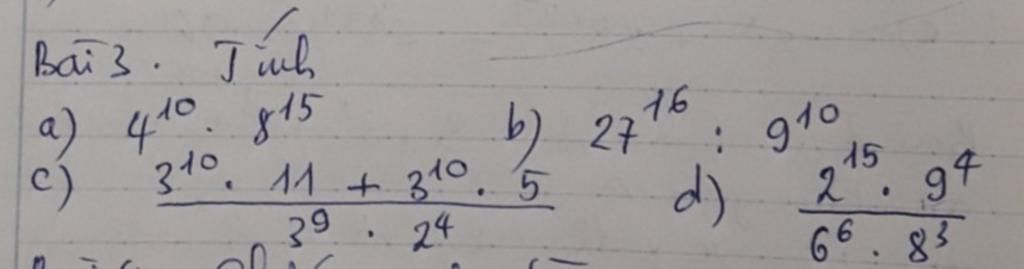 Bài 3. Tính
a) 4¹⁰. 8¹⁵ b) 27¹⁶ : 9¹⁰
c) (3¹⁰. 11 + 3¹⁰. 5)/(3⁹. 2⁴) d) (2¹⁵. 9⁴)/(6⁶. 8³)